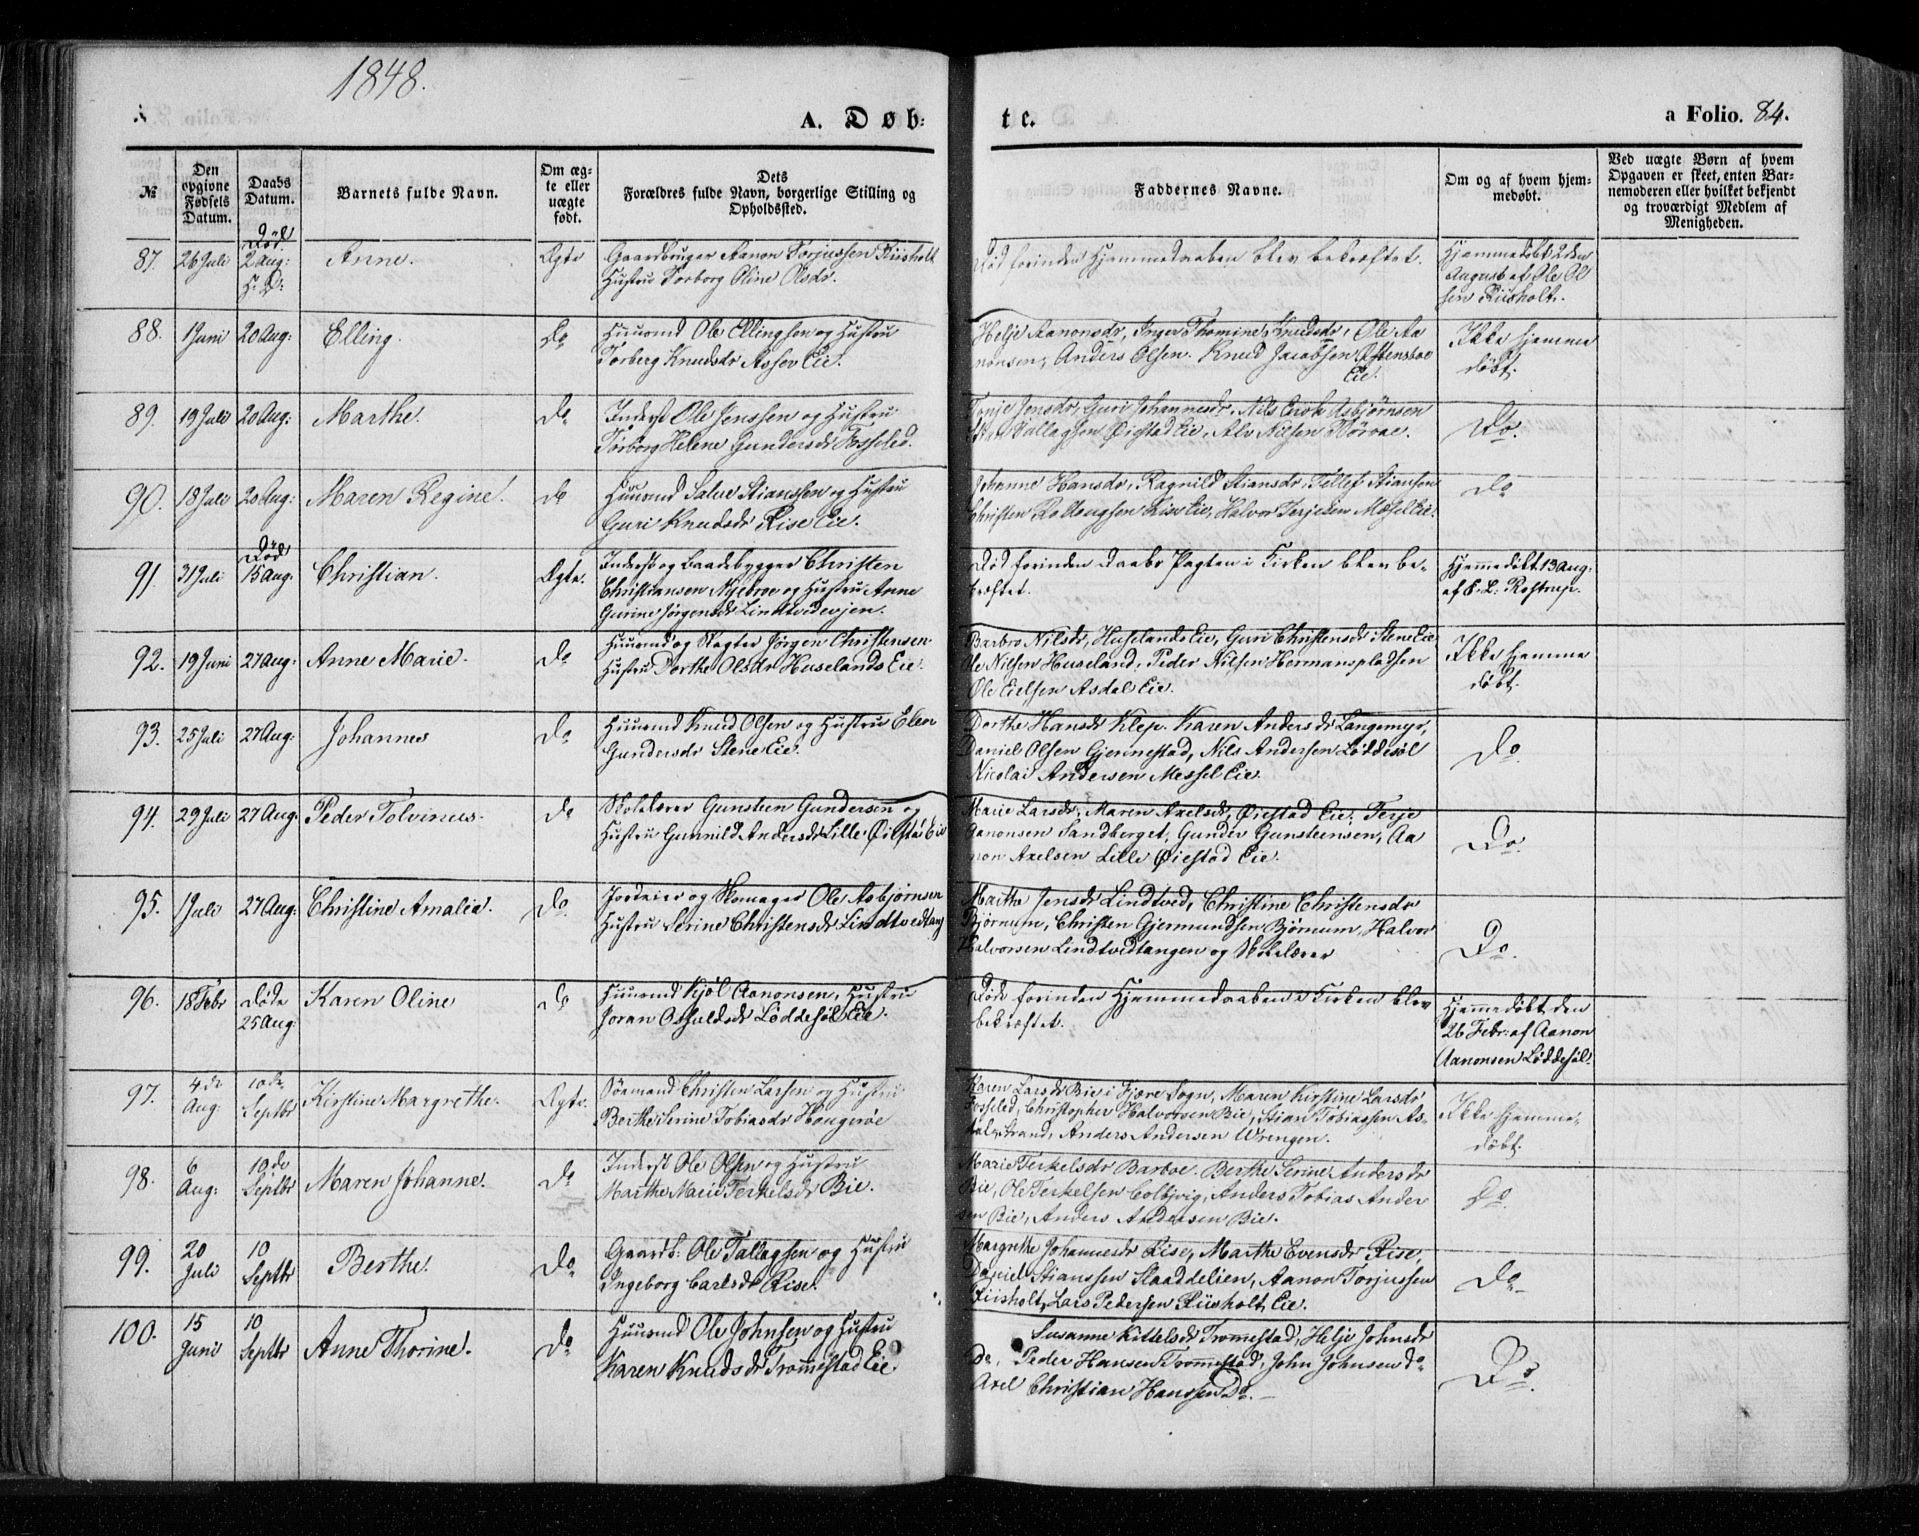 1848.
A. Døb:
te.
a Folio. 84.
№
Den opgivne Fødsels Datum.
Daabs Datum.
Barnets fulde Navn.
Om ægte eller uægte født.
Dets Forældres fulde Navn, borgerlige Stilling og Opholdssted.
Faddernes Navne.
Om og af hvem hjemmedøbt.
Ved uægte Børn af hvem Opgaven er skeet, enten Barnemoderen eller hvilket bekjendt og troværdigt Medlem af Menigheden.
87. 26 Juli Død 2 Aug: H: D: Anne. Ægte
Gaardbruger Aanon Torjussen Riisholt
Hustru Torborg Oline Olsdr.
Død forinden Hjemmedaaben blev bekræftet.
Hjemmedøbt 2den
August af Ole Ol
sen Riisholt.
88. 1 Juni 20 Aug: Elling. do
Huusmd Ole Ellingsen og Hustru
Torberg Knudsdr Assev Eie.
Helje Aanonsdr, Inger Thomine Knudsdr, Ole Aa
nonsen, Anders Olsen. Knud Jacobsen Østensboe
Eie.
Ikke hjemme
døbt.
89. 19 Juli 20 Aug: Marthe. do
Inderst Ole Jenssen og Hustru
Torborg Helene Gundersdr Fosseled.
Tonje Jensdr, Guri Johannesdr, Nils Erich Asbjørnsen
Tallagsen Øiestad Eie, Alv Nilsen Rørvae.
Do.
90. 18 Juli 20 Aug: Maren Regine. do
Huusmd Salve Stianssen og Hustru
Guri Knudsdr Rise Eie.
Johanne Hansdr, Ragnild Stiansdr, Tellef Stiansen
Christen Rollougsen Rise Eie, Halvor Terjesen Mæsel Eie.
do
91. 31 Juli Død 15 Aug: Christian. Ægte.
Inderst og Baadebygger Christen
Christiansen Nyebroe og Hustru Anne
Gurine Jørgensdr Lindtvedevjen.
Død forinden Daabs Pagten i Kirken blev be-
kræftet.
Hjemmedøbt 13 Aug:
af E. L. Rostrup.
92. 19 Juni 27 Aug: Anne Marie. do
Huusmd og Røgter Jørgen Christensen
Hustru Dorthe Olsdr Huselands Eie.
Barbro Nilsdr, Huselands Eie, Guri Christensdr Stene Eie
Ole Nilsen Huseland, Peder Nilsen Hermanspladsen
Ole Eielsen Asdal Eie.
Ikke hjemme
døbt.
93. 25 Juli 27 Aug: Johannes do
Huusmd Knud Olsen og Hustru Elen
Gundersdr Stene Eie.
Dorthe Hansdr Klep. Karen Andersdr Langemyr,
Daniel Olsen Gjennestad, Nils Andersen Løddesøl
Nicolai Andersen Messel Eie.
Do
94. 29 Juli 27 Aug: Peder Tolvinus. do
Skolelærer Gunsteen Gundersen og
Hustru Gunnild Andersdr Lille Øiestad Eie
Marie Larsdr, Maren Axelsdr, Øiestad Eie, Terje
Aanonsen Sandberget, Gunder Gunsteensen, Aa
non Axelsen Lille Øiestad Eie.
Do.
95. 1 Juli 27 Aug: Christine Amalia. do
Jordeier og Skomager Ole Asbjørnsen
Hustru Serine Christensdr Lindtvedtang
Marthe Jensdr Lindtved, Christine Christensdr
Bjørnum, Christen Gjermundsen Bjørnum, Halvor
Halvorsen Lindtvedtangen og Skolelærer
Do.
96. 18 Febr Døde 25 Aug: Karen Oline do
Huusmd Kjøl Aanonsen, Hustru
Joran Osuldsdr Løddesøl Eie.
Døde forinden Hjemmedaaben i Kirken blev
bekræftet.
Hjemmedøbt den
26 Febr: af Aanon
Aanonsen Løddesøl.
97. 4de Aug: 10de Septbr Kirstine Margrethe. Ægte.
Sømand Christen Larsen og Hustru
Berthe Serine Tobiasdr Hougerøe
Karen Larsdr Bie i Fjære Sogn, Maren Kirstine Larsdr
Fosseled, Christopher Halvorsen Bie, Stian Tobiassen As-
dalsstrand, Anders Andersen Wrengen.
Ikke hjemme-
døbt.
98. 6 Aug: 10de Septbr Maren Johanne. do
Inderst Ole Olsen og Hustru
Marthe Marie Terkelsdr Bie.
Marie Terkelsdr Barboe. Berthe Serine Andersdr
Bie, Ole Terkelsen Colbjvig, Anders Tobias Ander
sen Bie, Anders Andersen Bie.
do.
99. 20 Juli 10 Septbr Berthe. do
Gaardb: Ole Tallagsen og Hustru
Ingeborg Carlsdr Rise.
Margrethe Johannesdr Rise, Marthe Evensdr Rise,
Daniel Stianssen Slaaddelien, Aanon Torjussen
Riisholt, Lars Pedersen Riisholt Eie.
do
100. 15 Juni 10 Septbr Anne Thorine. do
Huusmd Ole Johnsen og Hustru
Karen Knudsdr Trommestad Eie.
Susanne Kittelsdr Trommestad, Helje Johnsdr
do, Peder Hansen Trommestad, John Johnsen do
Axel Christian Hanssen do. -
Do.